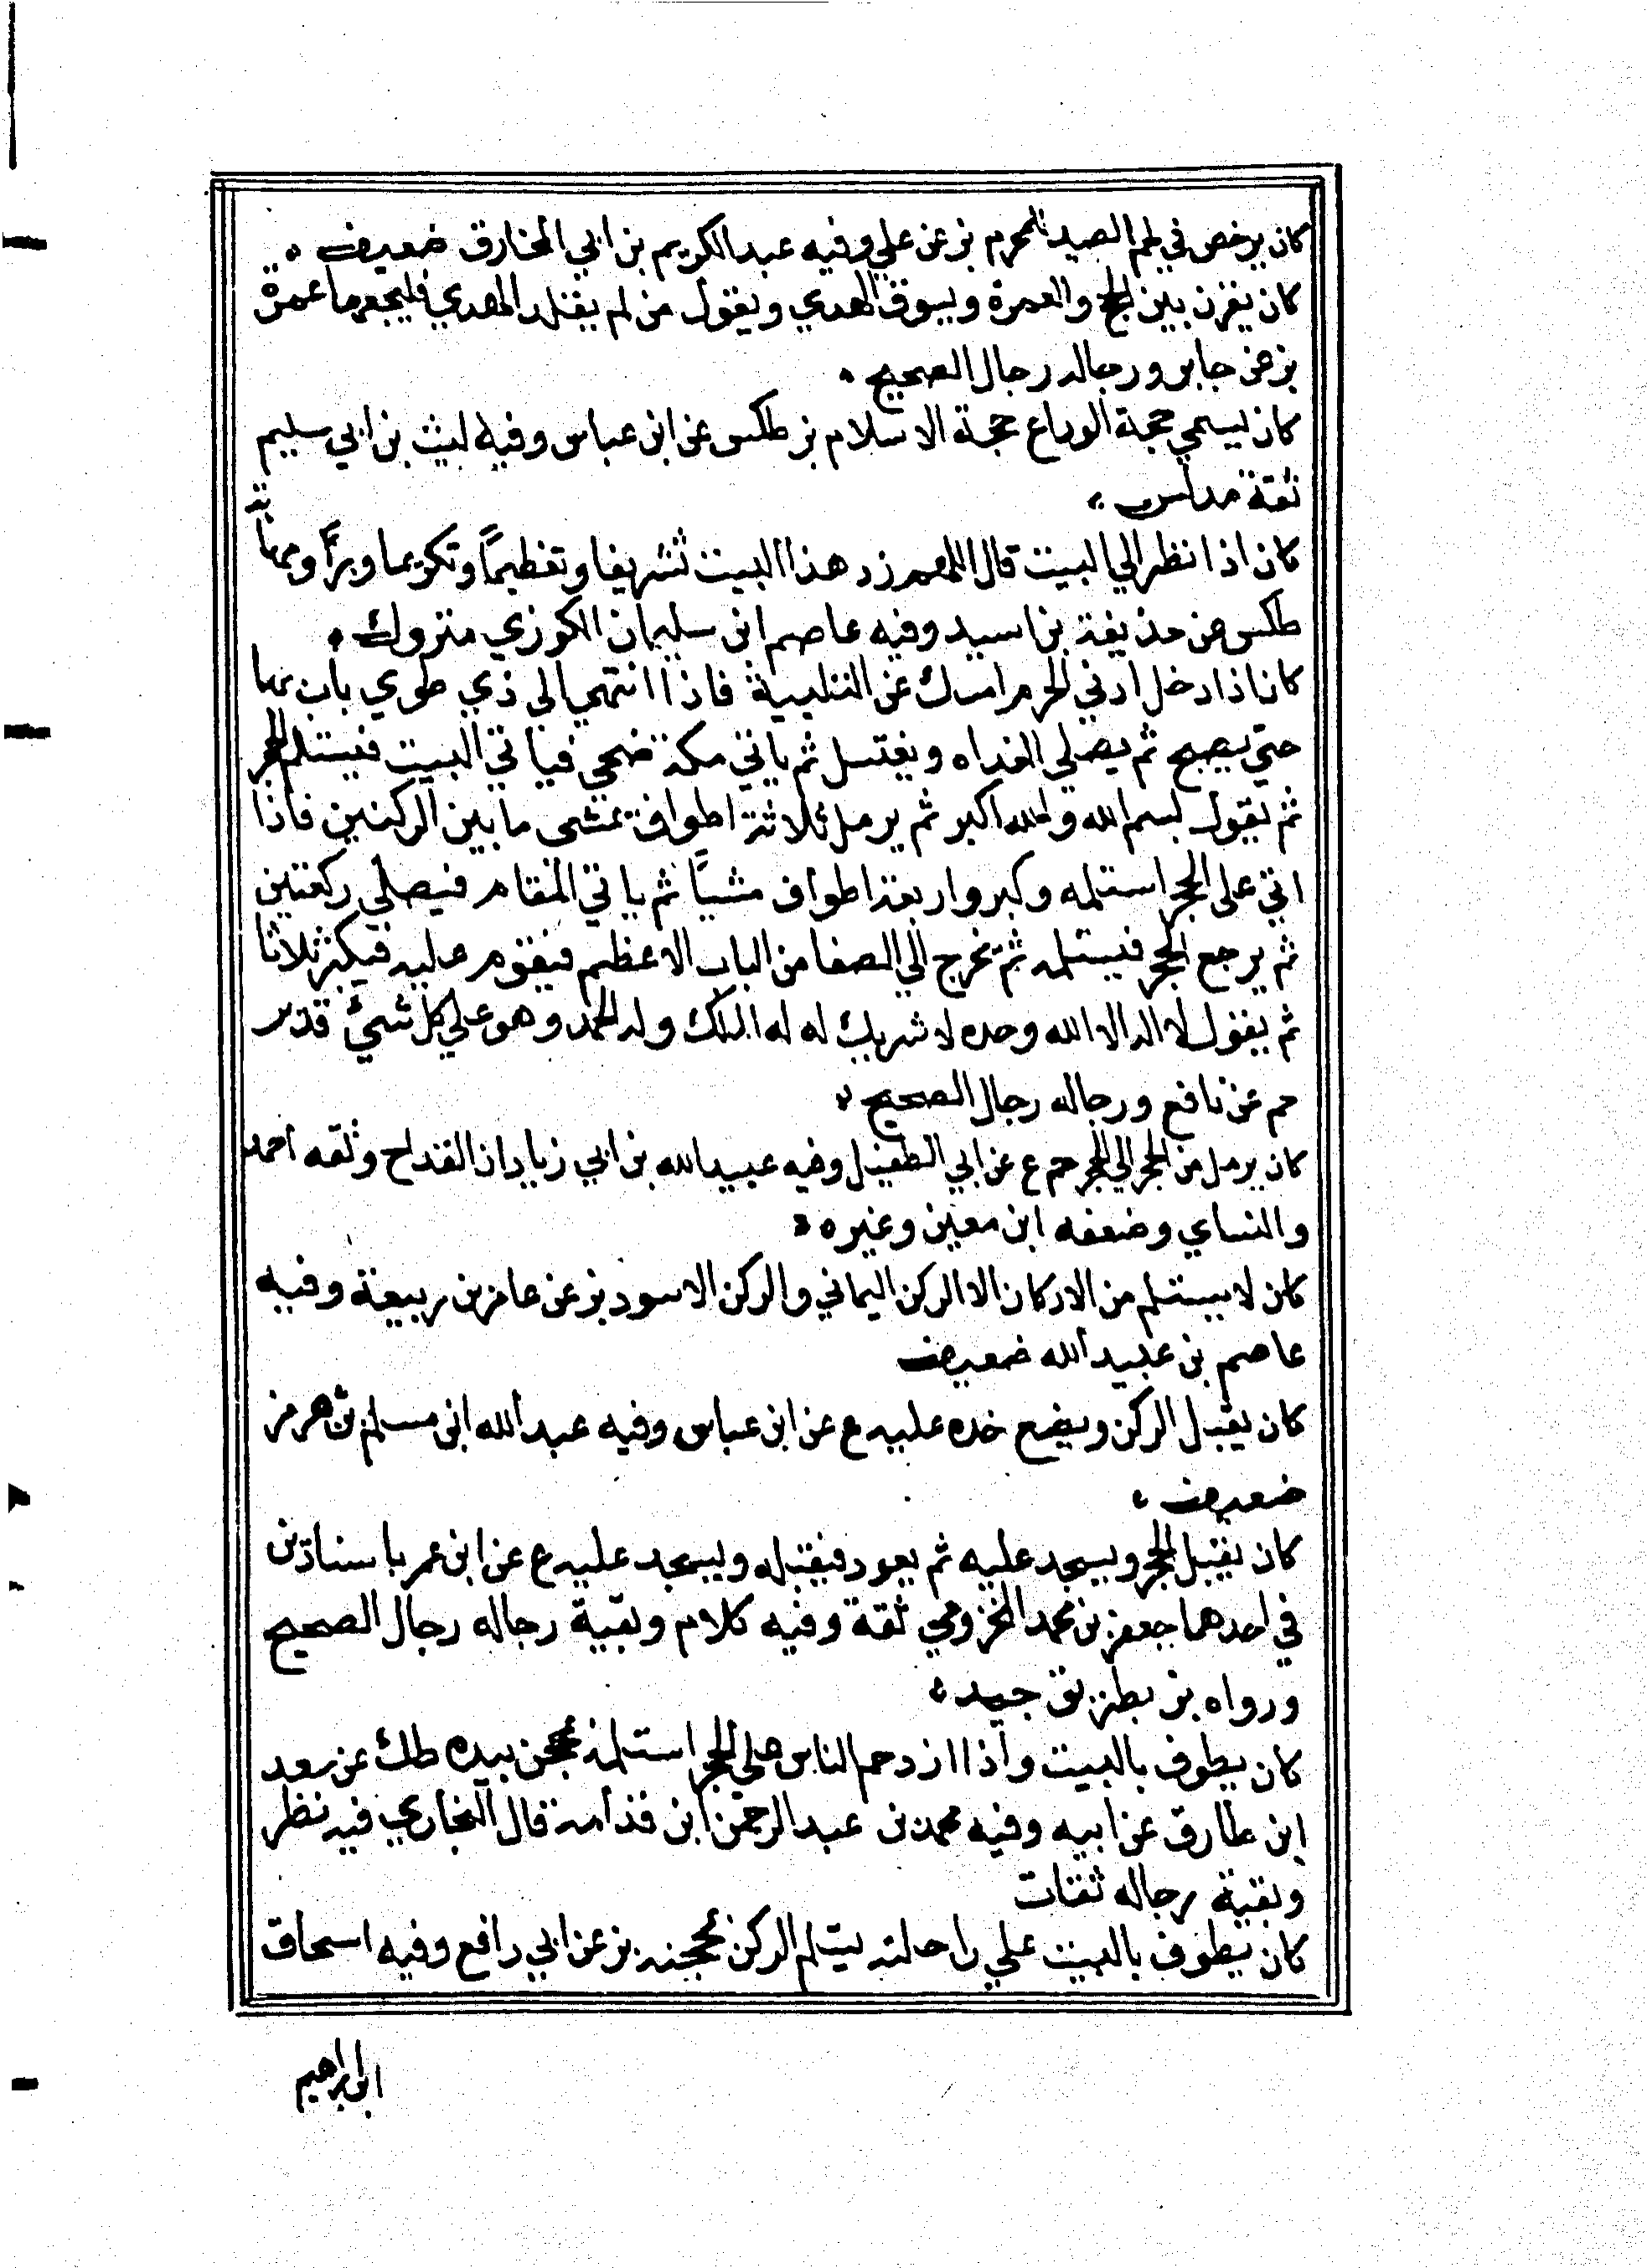 كان يرخص في لحم الصيد للمحرم بز عن علي وفيه عبد الكريم بن ابي المخارق ضعيف
كان يقرن بين الحج والعمرة ويسوق الهدي ويقول من لم يقلد الهدي فليجعلها عمرة
بز عن جابر ورجاله رجال الصحيح
كان يسمي حجة الوداع حجة الاسلام بز طكس عن ابن عباس وفيه ليث بن ابي سليم
ثقة مدلس
كان اذا نظر الي البيت قال اللهم زد هذا البيت تشريفا وتعظيمًا وتكريما وبرًا ومهابة
طكس عن حذيفة بن اسيد وفيه عاصم ابن سليمان الكوزي متروك
كان اذا دخل ادني الحرم امسك عن التلبية فاذا انتهي الي ذي طوي بات بها
حتي يصبح ثم يصلي الغداه ويغتسل ثم ياتي مكة ضحي فياتي البيت فيستلم الحجر
ثم يقول بسم الله والله اكبر ثم يرمل ثلاثة اطواف يمشى ما بين الركنين فاذا
اتي على الحجر استلمه وكبر واربعة اطواف مشيًا ثم ياتي المقام فيصلي ركعتين
ثم يرجع الحجر فيستلمه ثم يخرج الي الصفا من الباب الاعظم فيقوم عليه فيكبر ثلاثا
ثم يقول لا اله الا الله وحده لا شريك له له الملك وله الحمد وهو علي كل شيئ قدير
حم عن نافع ورجاله رجال الصحيح
كان يرمل من الحجر الي الحجر حم ع عن ابي الطفيل وفيه عبيد الله بن ابي زيادان القداح وثقه احمد
والنساي وضعفه ابن معين وغيره
كان لا يستلم من الاركان الا الركن اليماني والركن الاسود بز عن عامر بن ربيعة وفيه
عاصم بن عبيد الله ضعيف
كان يقبل الركن ويضع خده عليه ع عن ابن عباس وفيه عبد الله ابن مسلم بن هرمز
ضعيف
كان يقبل الحجر ويسجد عليه ثم يعود فيقبله ويسجد عليه ع عن ابن عمر باسنادين
في احدهما جعفر بن محمد المخزومي ثقة وفيه كلام وبقية رجاله رجال الصحيح
ورواه بز بطريق جيد
كان يطوف بالبيت واذا ازدحم الناس علي الحجر استلمه بمحجن بيده طك عن سعد
ابن طارق عن ابيه وفيه محمد بن عبد الرحمن ابن قدامة قال البخاري فيه نظر
وبقية رجاله ثقات
كان يطوف بالبيت علي راحلته يستلم الركن بمحجنه بز عن ابي رافع وفيه اسحاق
ابن ابراهيم